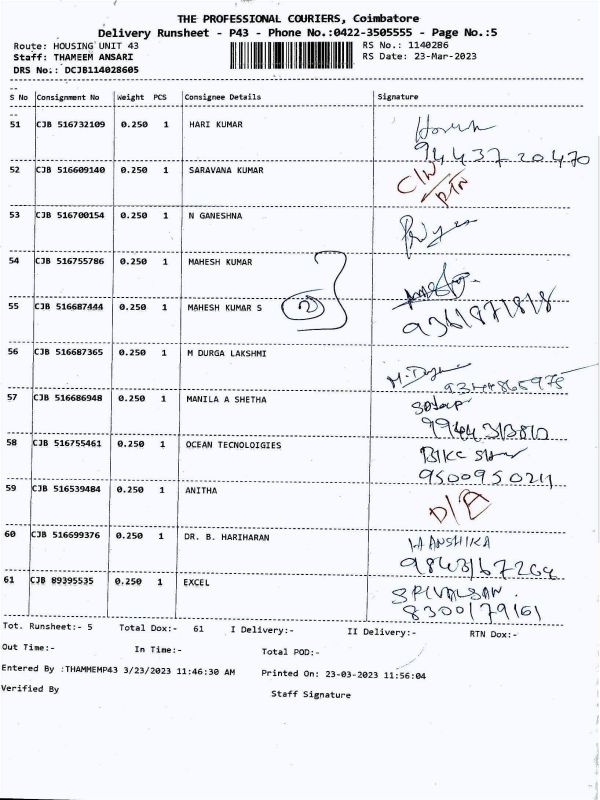 THE PROFESSIONAL COURIERS, Coimbatore
Delivery Runsheet - P43 - Phone No.:0422-3505555 - Page No.:5
Route: HOUSING UNIT 43 RS No.: 1140286
Staff: THAMEEM ANSARI RS Date: 23-Mar-2023
DRS No.: DCJB114028605
S No Consignment No Weight PCS Consignee Details Signature
51 CJB 516732109 0.250 1 HARI KUMAR
94437 20470
52 CJB 516609140 0.250 1 SARAVANA KUMAR C/N
RTN
53 CJB 516700154 0.250 1 N GANESHNA
54 CJB 516755786 0.250 1 MAHESH KUMAR
55 CJB 516687444 0.250 1 MAHESH KUMAR S 2 9361871818
56 CJB 516687365 0.250 1 M DURGA LAKSHMI
9344865975
57 CJB 516686948 0.250 1 MANILA A SHETHA
9944313810
58 CJB 516755461 0.250 1 OCEAN TECNOLOIGIES
9500950211
59 CJB 516539484 0.250 1 ANITHA D/A
60 CJB 516699376 0.250 1 DR. B. HARIHARAN HANSHIKA
9843167264
61 CJB 89395535 0.250 1 EXCEL SRIVALSAN
8300179161
Tot. Runsheet:- 5 Total Dox:- 61 I Delivery:- II Delivery:- RTN Dox:-
Out Time:- In Time:- Total POD:-
Entered By :THAMMEMP43 3/23/2023 11:46:30 AM Printed On: 23-03-2023 11:56:04
Verified By Staff Signature